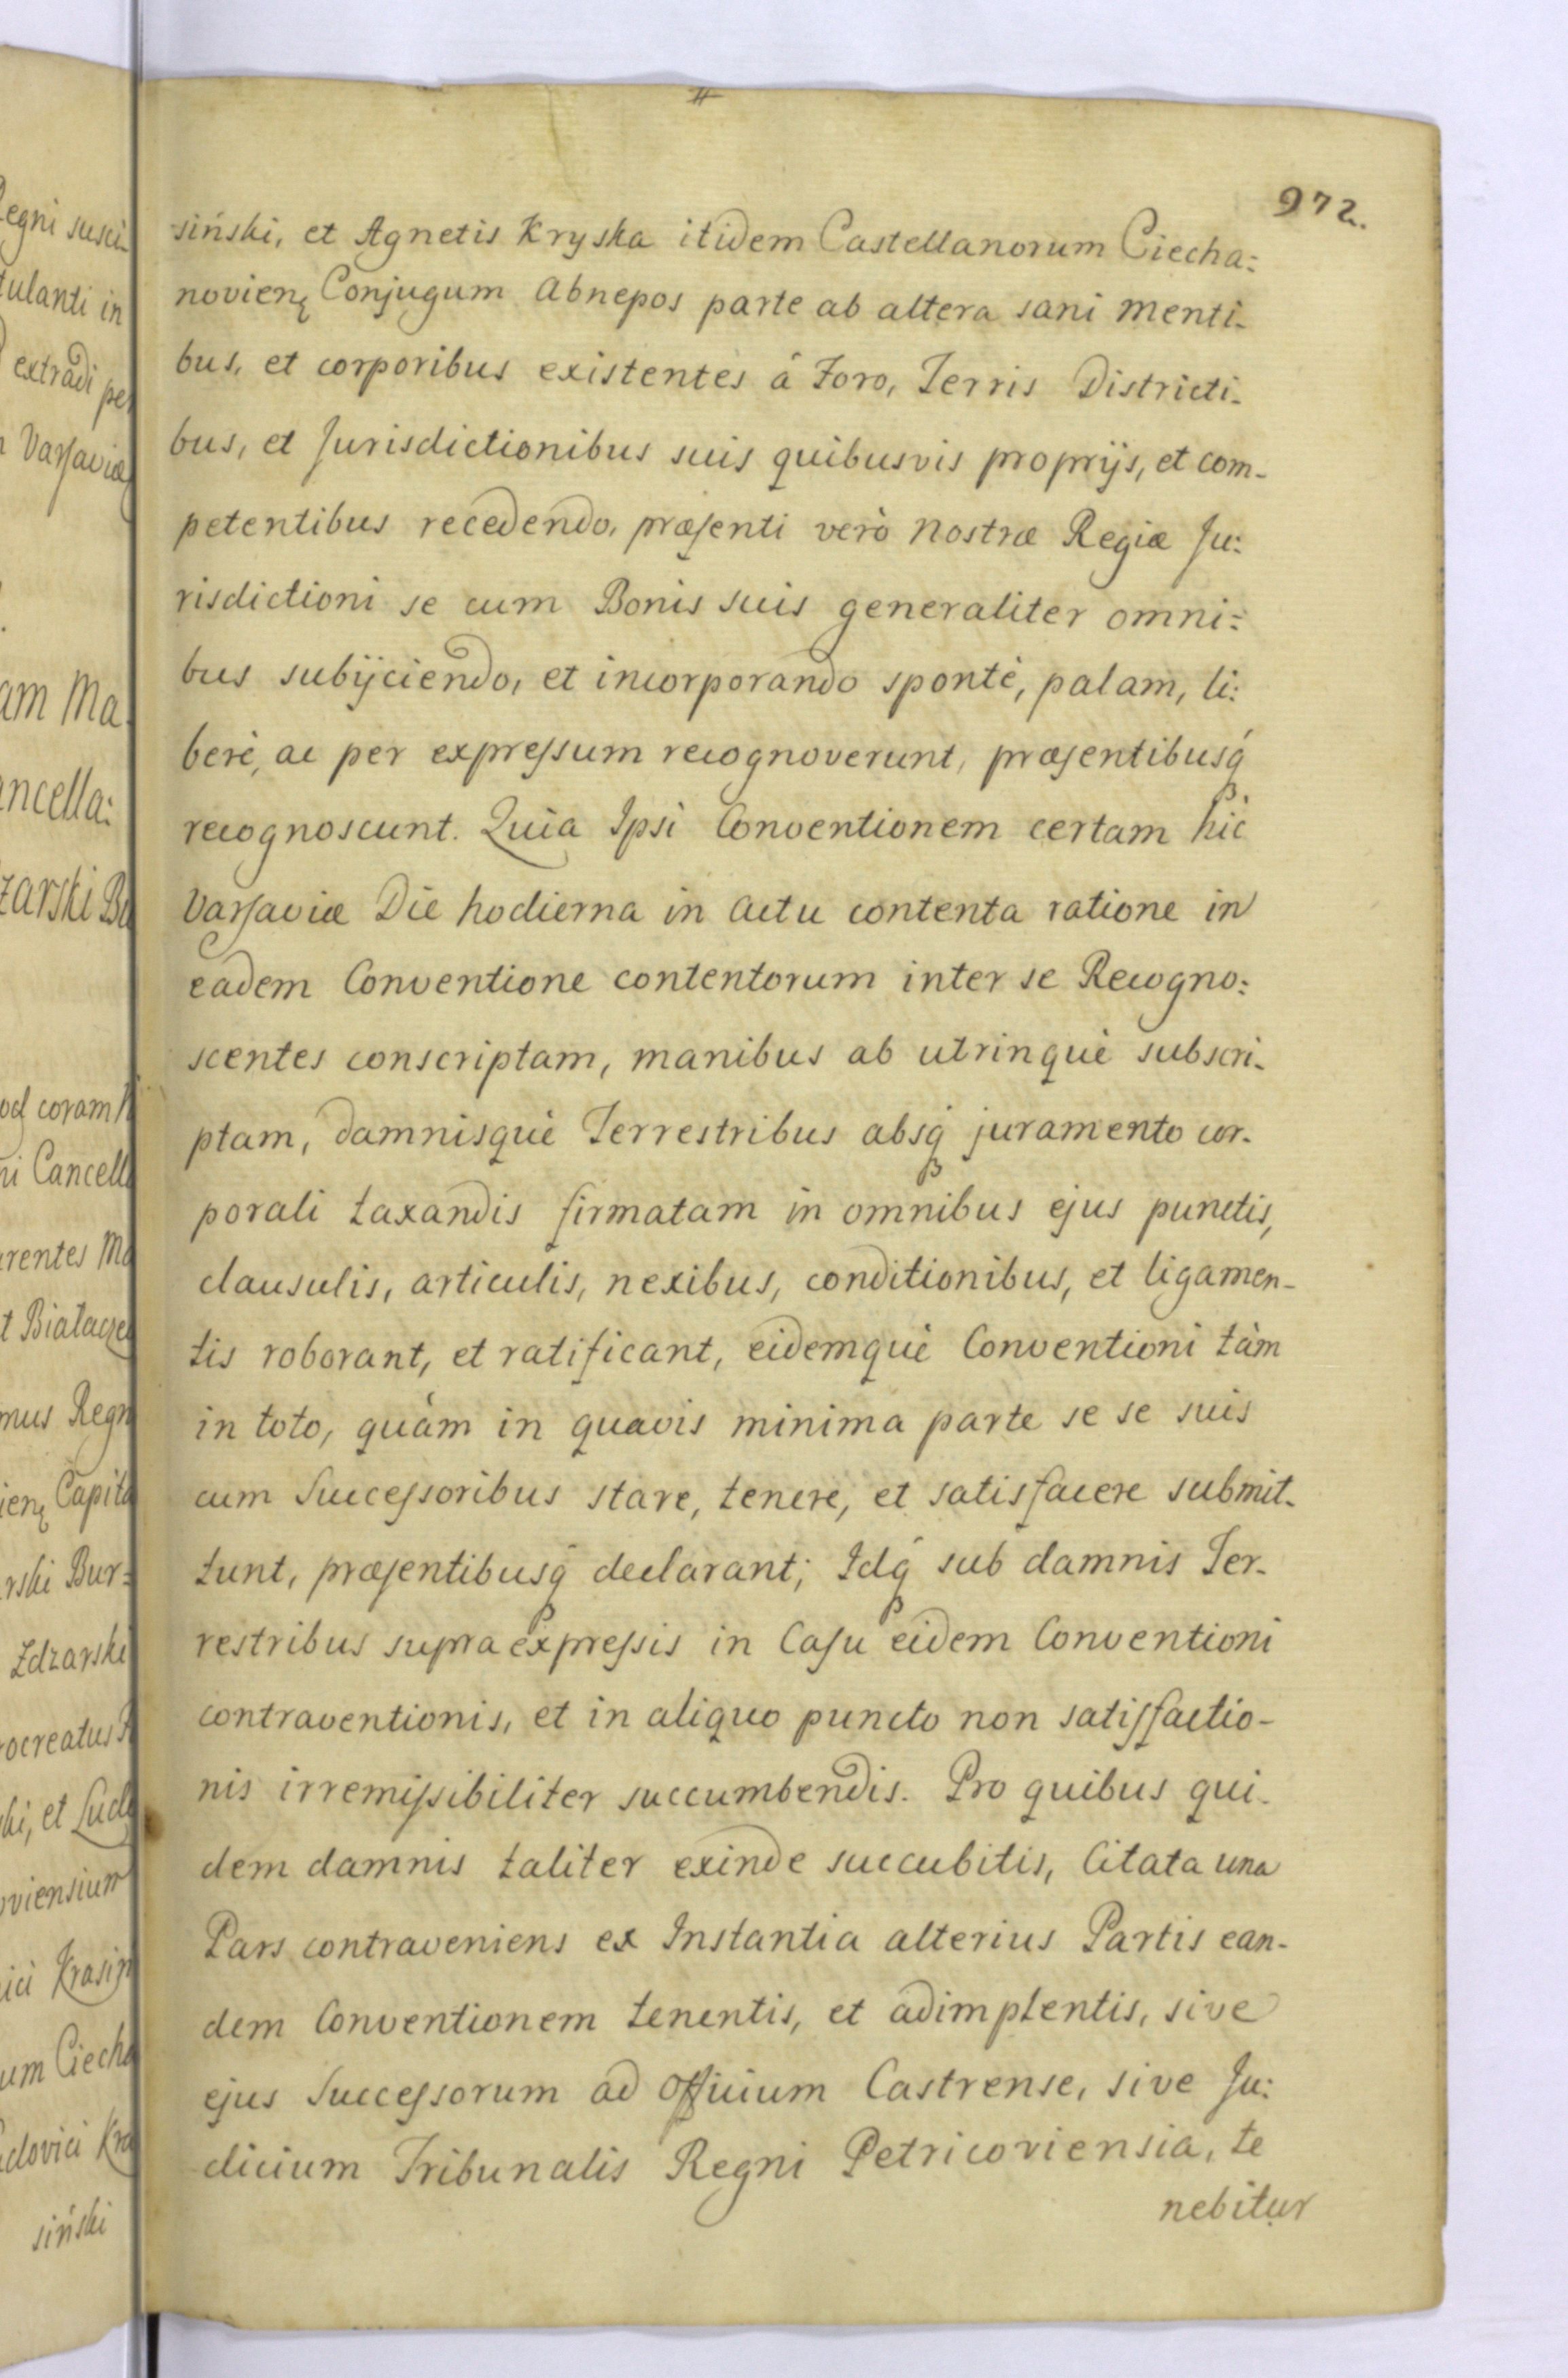 972.
siński, et Agnetis Kryska itidem Castellanorum Ciecha:
novien̨ Conjugum Abnepos parte ab altera sani menti-
bus, et corporibus existentes â Foro, Terris Districti-
bus, et Jurisdictionibus suis quibusvis proprijs, et com-
petentibus recedendo, præsenti verò Nostræ Regiæ Ju:
risdictioni se cum Bonis suis generaliter omni=
bus subijciendo, et incorporando spontè, palam, li:
berè, ac per expressum recognoverunt, præsentibusq́
recognoscunt. Quia Ipsi Conventionem certam hic
Varsaviæ Die hodierna in Actu contenta ratione in
eadem Conventione contentorum inter se Recogno:
scentes conscriptam, manibus ab utrinquè subscri-
ptam, damnisquè Terrestribus absq́ juramento cor-
porali taxandis firmatam in omnibus ejus punctis,
clausulis, articulis, nexibus, conditionibus, et ligamen-
tis roborant, et ratificant, eidemquè Conventioni tàm
in toto, quàm in quavis minima parte se se suis
cum Successoribus stare, tenere, et satisfacere submit-
tunt, præsentibusq́ declarant; Idq́ sub damnis Ter-
restribus supra expressis in Casu eidem Conventioni
contraventionis, et in aliquo puncto non satisfactio-
nis irremissibiliter succumbendis. Pro quibus qui-
dem damnis taliter exinde succubitis, Citata una
Pars contraveniens ex Instantia alterius Partis ean-
dem Conventionem tenentis, et adimplentis, sive
ejus Successorum ad Officium Castrense, sive Ju:
dicium Tribunalis Regni Petricoviensia, te
nebitur